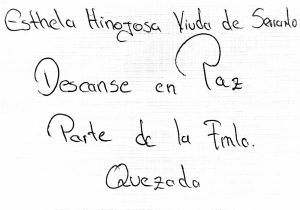 Esthela Hinojosa Viuda de Serrato
Descanse en Paz
Parte de la Fmla.
Quezada